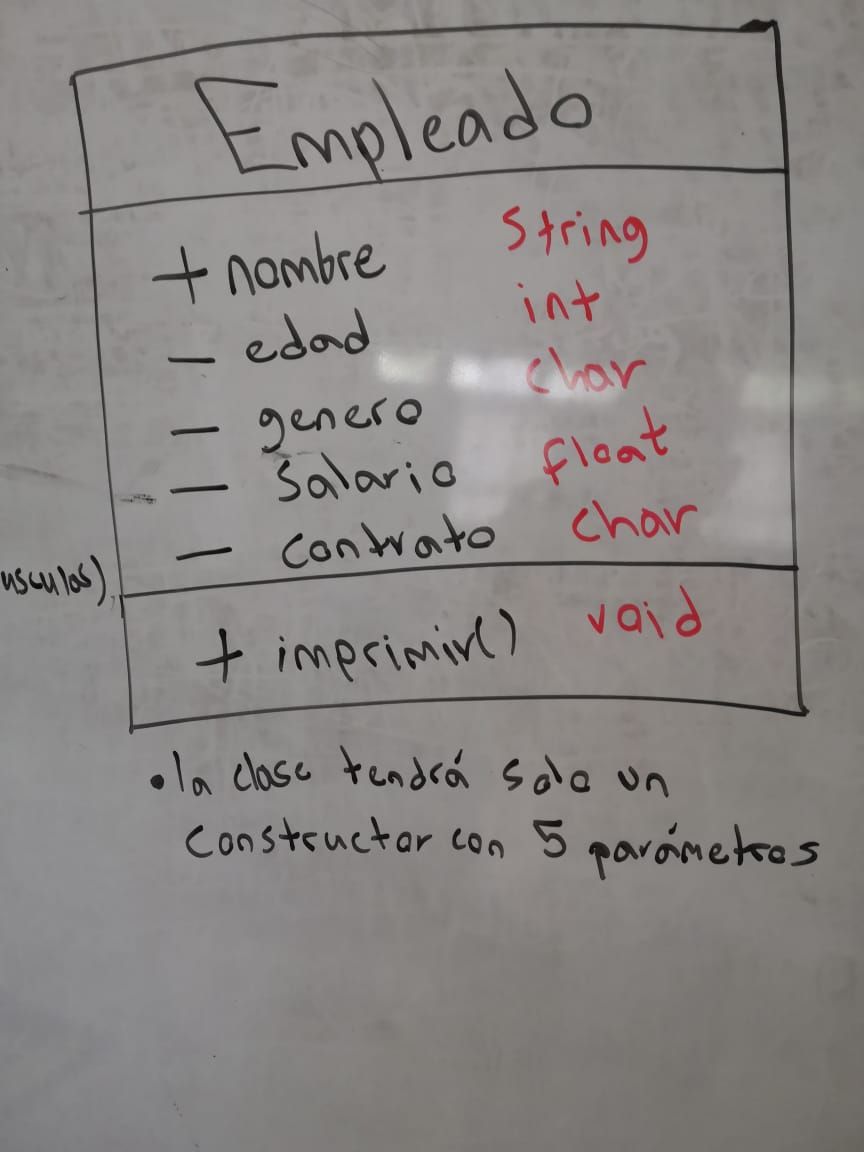 Empleado
+ nombre String
- edad int
- genero char
- Salario float
- contrato char
usculas)
+ imprimir() void
• la clase tendrá solo un
constructor con 5 parámetros